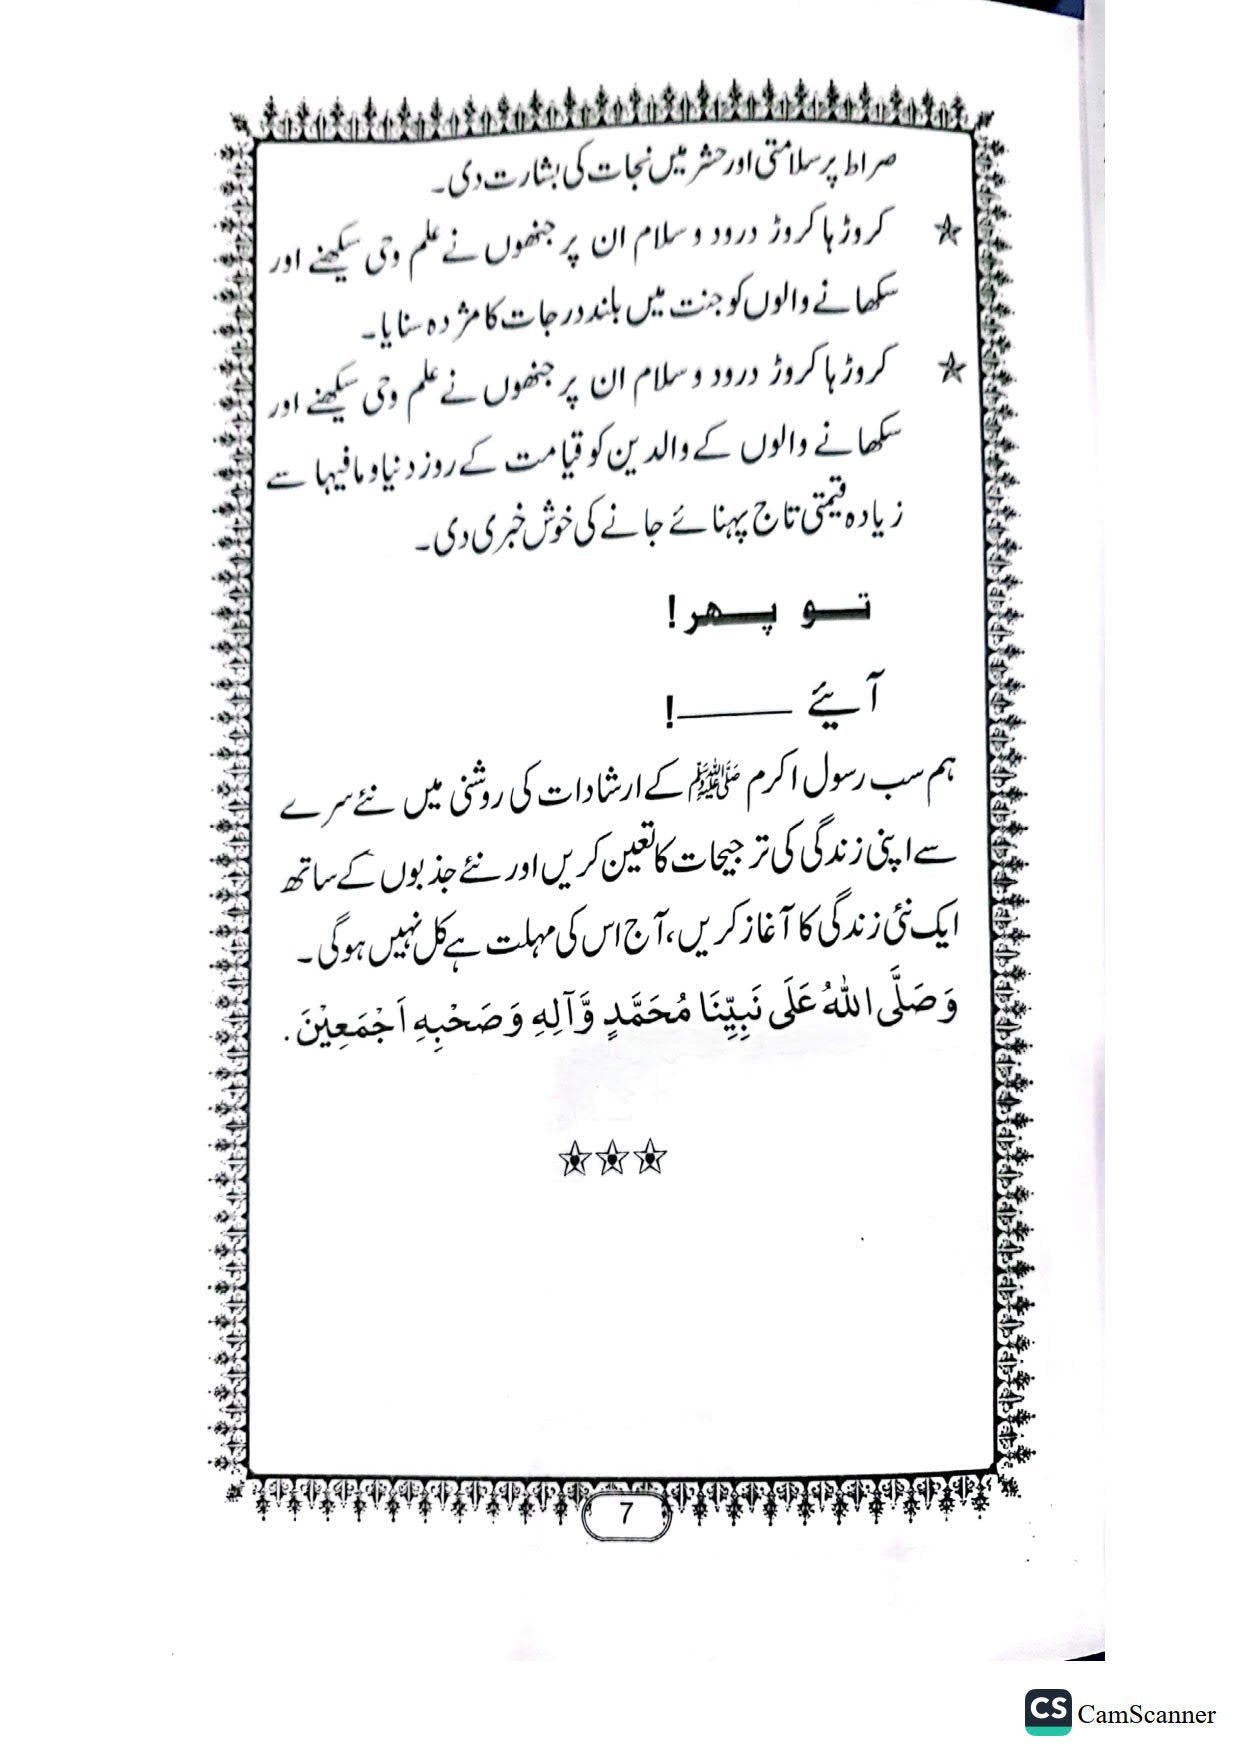 صراط پر سلامتی اور حشر میں نجات کی بشارت دی۔
☆ کروڑ ہا کروڑ درود و سلام ان پر جنھوں نے علم وحی سیکھنے اور
سکھانے والوں کو جنت میں بلند درجات کا مژدہ سنایا۔
☆ کروڑ ہا کروڑ درود و سلام ان پر جنھوں نے علم وحی سیکھنے اور
سکھانے والوں کے والدین کو قیامت کے روز دنیا و مافیہا سے
زیادہ قیمتی تاج پہنائے جانے کی خوش خبری دی۔
تو پھر!
آیئے ———!
ہم سب رسول اکرم ﷺ کے ارشادات کی روشنی میں نئے سرے
سے اپنی زندگی کی ترجیحات کا تعین کریں اور نئے جذبوں کے ساتھ
ایک نئی زندگی کا آغاز کریں، آج اس کی مہلت ہے کل نہیں ہوگی۔
وَصَلَّى اللهُ عَلَى نَبِيِّنَا مُحَمَّدٍ وَّآلِهِ وَصَحْبِهِ اَجْمَعِيْنَ.
7
CS CamScanner